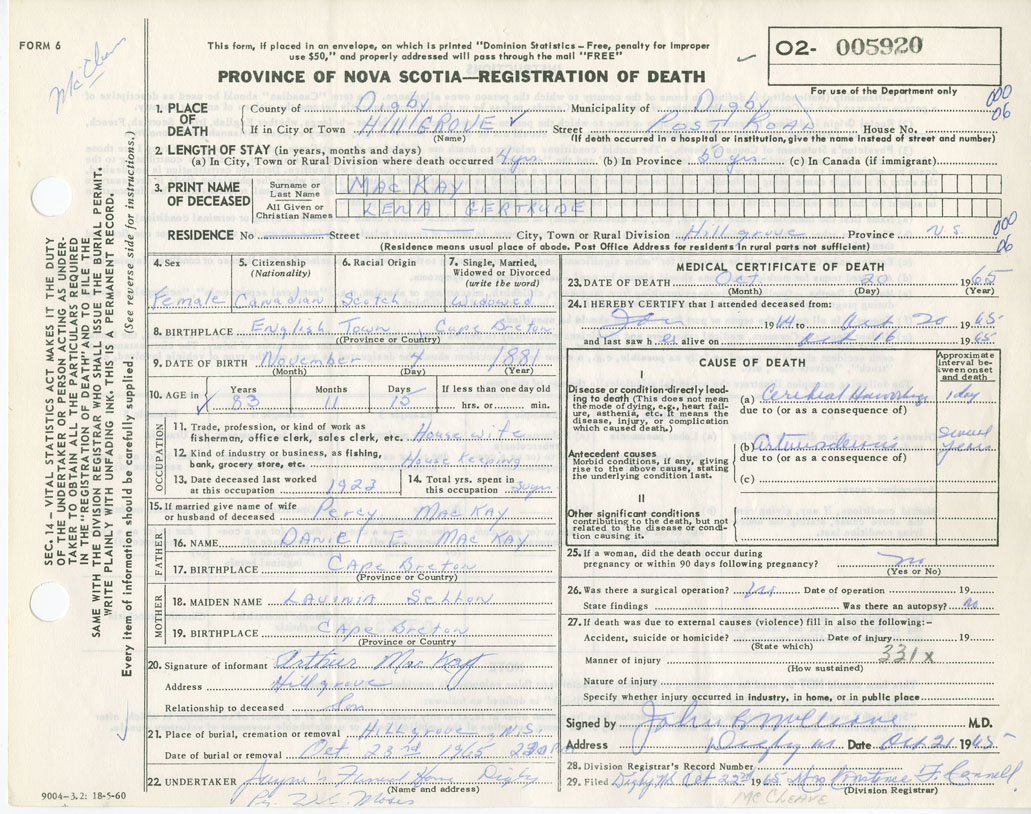 FORM 6
Mc Cleave
This form, if placed in an envelope, on which is printed "Dominion Statistics – Free, penalty for improper
use $50," and properly addressed will pass through the mail "FREE"
PROVINCE OF NOVA SCOTIA—REGISTRATION OF DEATH
O2- 005920
For use of the Department only
000
06
1. PLACE OF DEATH
County of Digby Municipality of Digby
If in City or Town HILLGROVE Street POST ROAD House No.
(Name) (If death occurred in a hospital or institution, give the name instead of street and number)
2. LENGTH OF STAY (in years, months and days)
(a) In City, Town or Rural Division where death occurred 4 yrs. (b) In Province 50 yrs. (c) In Canada (if immigrant)
3. PRINT NAME OF DECEASED
Surname or Last Name MAC KAY
All Given or Christian Names LENA GERTRUDE
RESIDENCE No Street City, Town or Rural Division Hillgrove Province N S
(Residence means usual place of abode. Post Office Address for residents in rural parts not sufficient)
000
06
4. Sex
Female
5. Citizenship
(Nationality)
Canadian
6. Racial Origin
Scotch
7. Single, Married,
Widowed or Divorced
(write the word)
Widowed
8. BIRTHPLACE English Town Cape Breton
(Province or Country)
9. DATE OF BIRTH November 4 1881
(Month) (Day) (Year)
10. AGE in
Years Months Days If less than one day old
83 11 15 hrs. or min.
OCCUPATION
11. Trade, profession, or kind of work as
fisherman, office clerk, sales clerk, etc. Housewife
12. Kind of industry or business, as fishing,
bank, grocery store, etc. House Keeping
13. Date deceased last worked
at this occupation 1923
14. Total yrs. spent in
this occupation yrs
15. If married give name of wife
or husband of deceased Percy MacKay
FATHER
16. NAME DANIEL E. MAC KAY
17. BIRTHPLACE CAPE Breton
(Province or Country)
MOTHER
18. MAIDEN NAME LAVINIA
19. BIRTHPLACE CAPE Breton
(Province or Country)
20. Signature of informant Arthur Mac Kay
Address Hillgrove
Relationship to deceased Son
21. Place of burial, cremation or removal Hillgrove, N.S.
Date of burial or removal Oct 23rd 1965
22. UNDERTAKER Jayne's Funeral Home Digby
(Name and address)
Per
9004-3.2: 18-5-60
MEDICAL CERTIFICATE OF DEATH
23. DATE OF DEATH Oct 20 1965
(Month) (Day) (Year)
24. I HEREBY CERTIFY that I attended deceased from:
Jan 1964 to Oct 20 1965
and last saw her alive on Oct 16 1965
CAUSE OF DEATH
Approximate
interval be-
tween onset
and death
I
Disease or condition directly lead-
ing to death (This does not mean
the mode of dying, e.g., heart fail-
ure, asthenia, etc. It means the
disease, injury, or complication
which caused death)
(a) Cerebral Hemorrhage 1 day
due to (or as a consequence of)
Antecedent causes
Morbid conditions, if any, giving
rise to the above cause, stating
the underlying condition last.
(b) Arteriosclerosis several years
due to (or as a consequence of)
(c)
II
Other significant conditions
contributing to the death, but not
related to the disease or condi-
tion causing it.
25. If a woman, did the death occur during
pregnancy or within 90 days following pregnancy? no
(Yes or No)
26. Was there a surgical operation? no Date of operation 19
State findings Was there an autopsy? no
27. If death was due to external causes (violence) fill in also the following:–
Accident, suicide or homicide? Date of injury 19
(State which)
331x
Manner of injury
(How sustained)
Nature of injury
Specify whether injury occurred in industry, in home, or in public place
Signed by John R McCleave M.D.
Address Digby NS Date Oct 21 1965
28. Division Registrar's Record Number
29. Filed Digby NS Oct 22nd 1965 Constence F. Connell
(Division Registrar)
MC CLEAVE
SEC. 14 – VITAL STATISTICS ACT MAKES IT THE DUTY
OF THE UNDERTAKER OR PERSON ACTING AS UNDER-
TAKER TO OBTAIN ALL THE PARTICULARS REQUIRED
IN THE "REGISTRATION OF DEATH" AND TO FILE THE
SAME WITH THE DIVISION REGISTRAR WHO SHALL ISSUE THE BURIAL PERMIT.
WRITE PLAINLY WITH UNFADING INK. THIS IS A PERMANENT RECORD.
Every item of information should be carefully supplied. (See reverse side for instructions.)